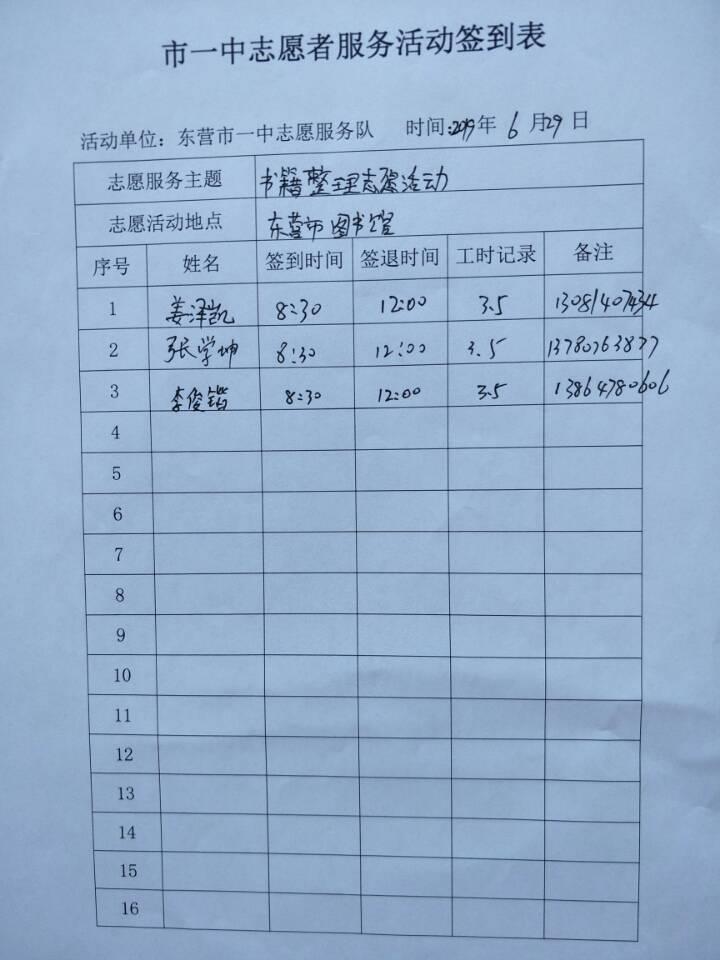 市一中志愿者服务活动签到表
活动单位：东营市一中志愿服务队 时间：2019年 6 月29日
志愿服务主题 书籍整理志愿活动
志愿活动地点 东营市图书馆
序号 姓名 签到时间 签退时间 工时记录 备注
1 姜泽凯 8:30 12:00 3.5 13081407434
2 张学坤 8:30 12:00 3.5 13780763877
3 李俊锴 8:30 12:00 3.5 13864780606
4
5
6
7
8
9
10
11
12
13
14
15
16